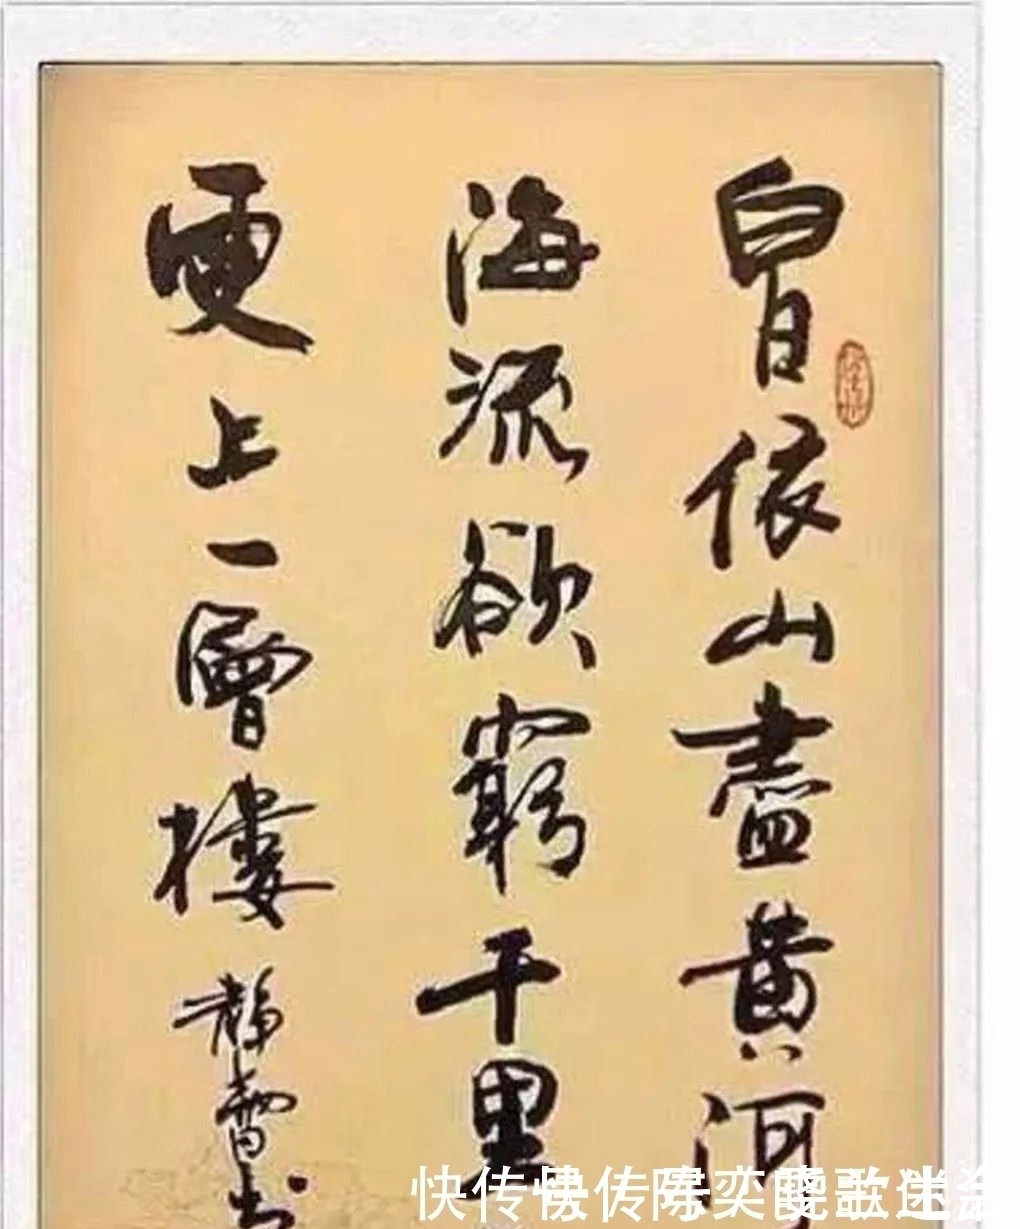 白日依山盡黃河
海流欲窮千里
更上一層樓